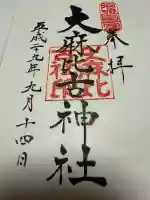 奉拝
大麻比古神社
平成二十九年九月十四日